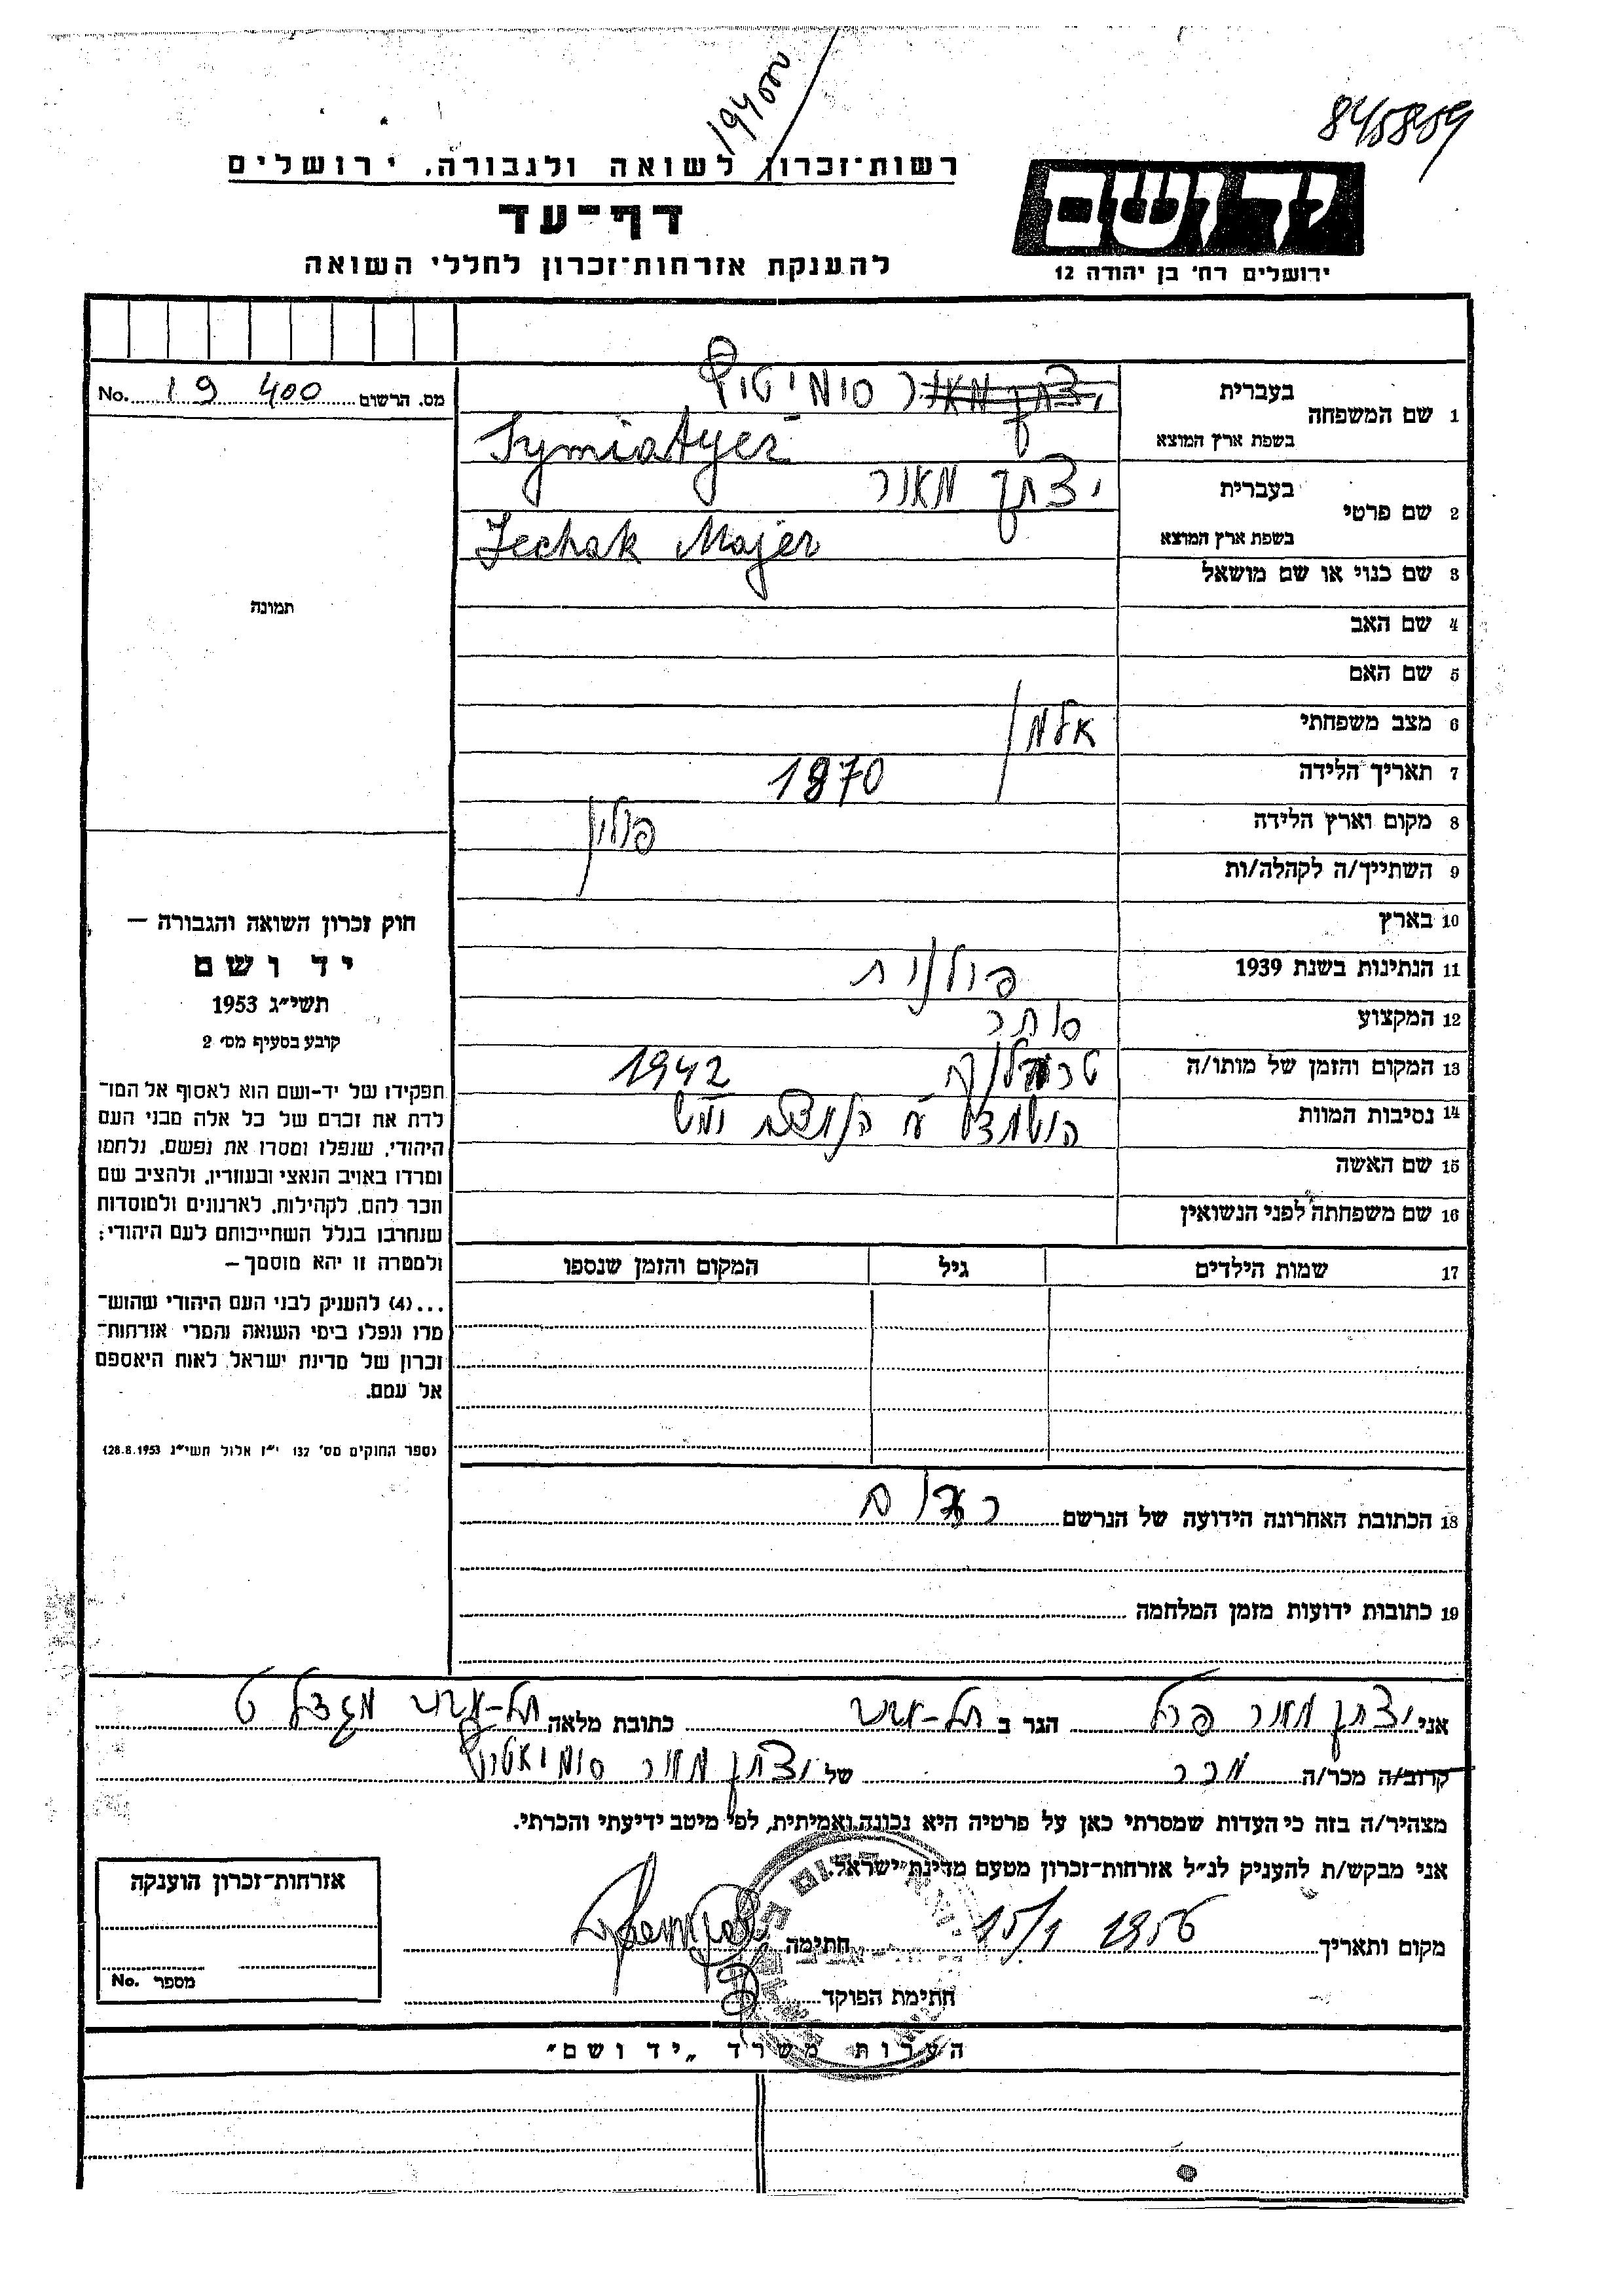 845859
19400
רשות־זכרון לשואה ולגבורה, ירושלים
דף־עד
להענקת אזרחות־זכרון לחללי השואה
יד ושם
ירושלים רח' בן יהודה 12
מס. הרשום 19 400 No.
1 שם המשפחה
בעברית יצחק מאיר סומיטיצקי
בשפת ארץ המוצא
2 שם פרטי
בעברית יצחק מאיר
בשפת ארץ המוצא Icchak Majer
3 שם כנוי או שם מושאל
4 שם האב
5 שם האם
6 מצב משפחתי אלמן
7 תאריך הלידה 1870
8 מקום וארץ הלידה פולין
9 השתייך/ה לקהלה/ות
10 בארץ
11 הנתינות בשנת 1939 פולנית
12 המקצוע סוחר
13 המקום והזמן של מותו/ה טרבלינקה 1942
14 נסיבות המוות
15 שם האשה
16 שם משפחתה לפני הנשואין
17 שמות הילדים גיל המקום והזמן שנספו
תמונה
חוק זכרון השואה והגבורה —
יד ושם
תשי״ג 1953
קובע בסעיף מס׳ 2
תפקידו של יד-ושם הוא לאסוף אל המו־
לדת את זכרם של כל אלה מבני העם
היהודי, שנפלו ומסרו את נפשם, נלחמו
ומרדו באויב הנאצי ובעוזריו, ולהציב שם
וזכר להם, לקהילות, לארגונים ולמוסדות
שנחרבו בגלל השתייכותם לעם היהודי;
ולמטרה זו יהא מוסמך —
...(4) להעניק לבני העם היהודי שהוש־
מדו ונפלו בימי השואה והמרי אזרחות־
זכרון של מדינת ישראל לאות היאספם
אל עמם.
(ספר החוקים מס׳ 132 י״ז אלול תשי״ג 28.8.1953)
18 הכתובת האחרונה הידועה של הנרשם רדום
19 כתובות ידועות מזמן המלחמה
אני יצחק מאיר פרל הגר ב תל-אביב כתובת מלאה תל-אביב
קרוב/ה מכר/ה מכר של יצחק מאיר
מצהיר/ה בזה כי העדות שמסרתי כאן על פרטיה היא נכונה ואמיתית, לפי מיטב ידיעתי והכרתי.
אני מבקש/ת להעניק לנ״ל אזרחות-זכרון מטעם מדינת ישראל.
מקום ותאריך 15/1 1956 חתימה
חתימת הפוקד
אזרחות־זכרון הוענקה
מספר No.
הערות משרד „יד ושם״